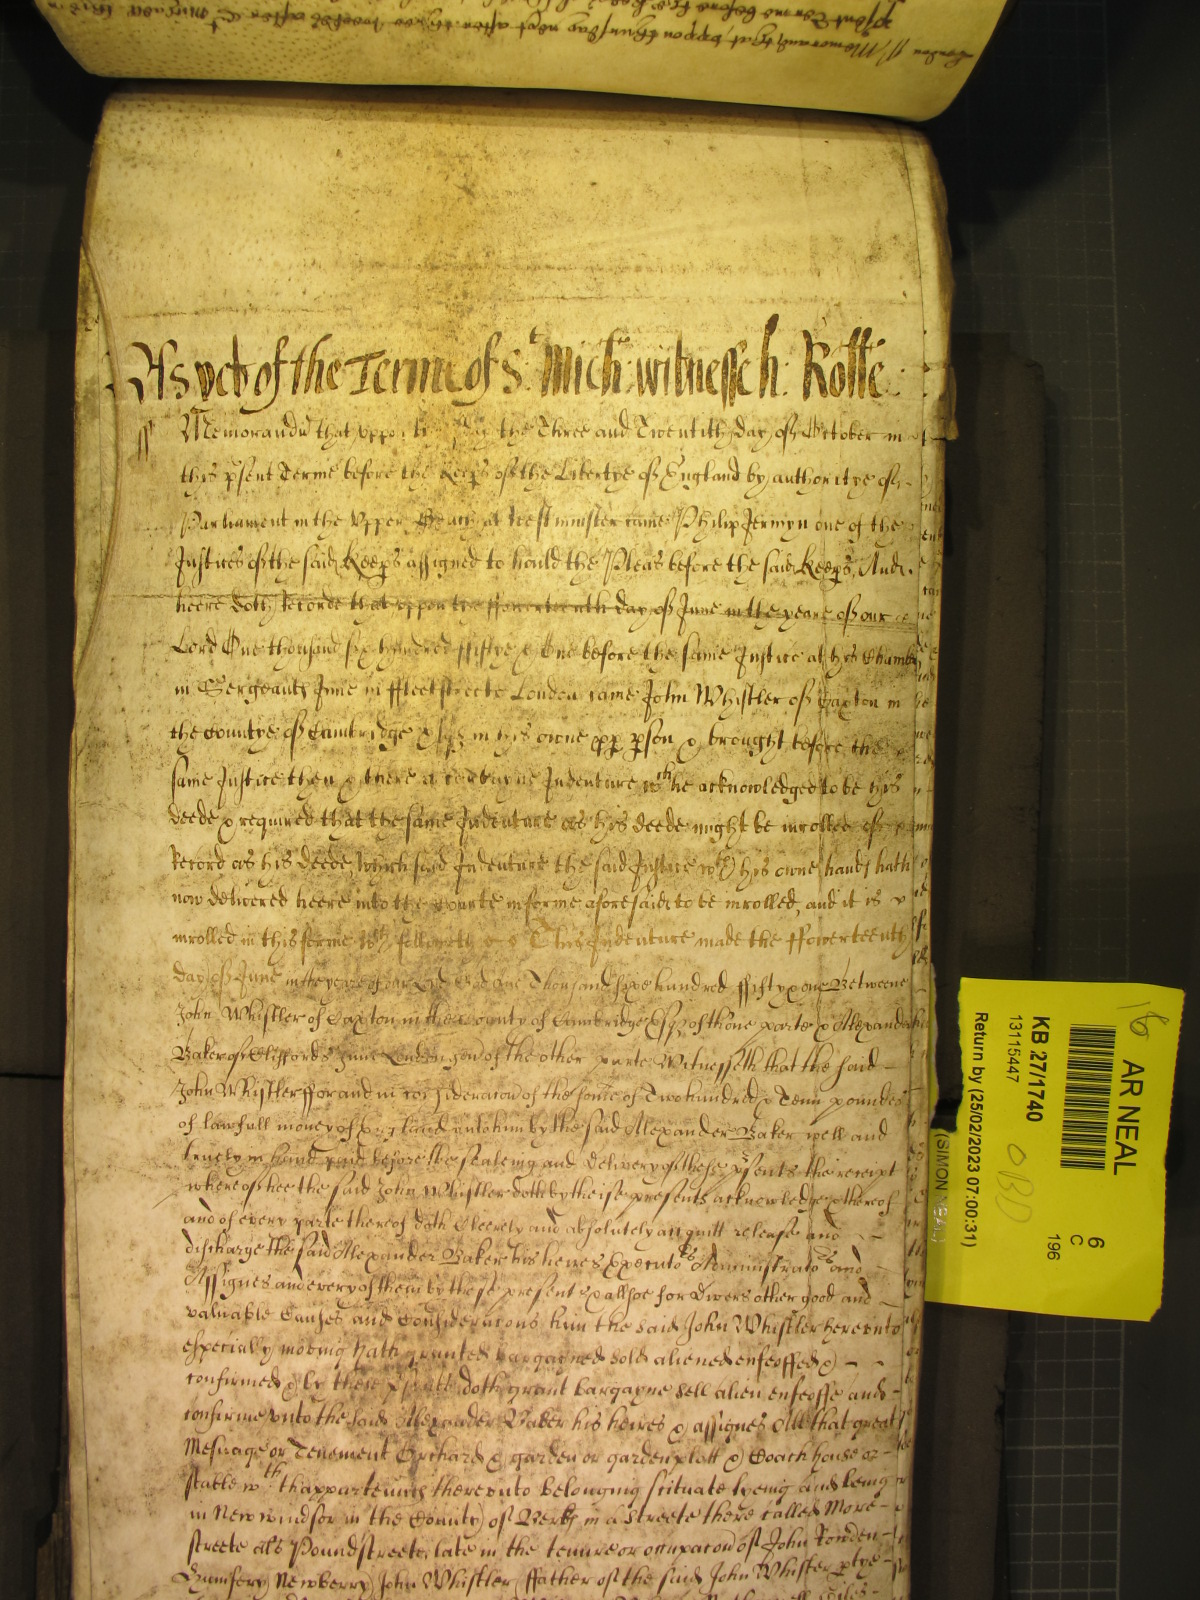 London ss Memorand that uppon thursday next after three weekes after St Michaell this
psent Terme before
As yet of the Terme of St Mich: witnesseth: Rolle
ss Memorand that uppon the Three and Twentith day of October in
this psent Terme before the Keeps of the Libertye of England by authoritye of
Parliament in the Upper Bench at Westminster came Philip Jermyn one of the
Justices of the said Keeps assigned to hould the Pleas before the said Keeps, And
heere doth recorde that uppon the ffowerteenth day of June in the yeare of our
Lord One thousand six hundred ffiftye & One before the same Justice at his Chamber
in Sergeants Inne in ffleetstreete London came John Whistler of Caxton in
the Countye of Cambridge Esqr in his owne pp pson & brought before the
same Justice then & there a certayne Indenture wch he acknowledged to be his
deede & required that the same Indenture as his deede might be inrolled of
Record as his deede, Which said Indenture the said Justice wth his owne hands hath
now delivered heere into the Courte in forme aforesaid to be inrolled, and it is
inrolled in this forme wch followeth This Indenture made the ffowerteenth
day of June in the yeare of our Lord God one Thousand sixe hundred ffifty & one Betweene
John Whistler of Caxton in the County of Cambridge Esqr of thone parte & Alexander
Baker of Cliffords Inne London gen of the other parte Witnesseth that the said
John Whistler ffor and in consideracon of the some of Two hundred & Tenn poundes
of lawfull money of England unto him by the said Alexander Baker well and
truely in hand paid before the sealeing and delivery of these psents the receipt
whereof hee the said John Whistler doth by theise presents acknowledge & thereof
and of every parte thereof doth Cleerely and absolutely acquitt release and
discharge the said Alexander Baker his heires Executors Administrators and
Assignes and every of them by these presents & allsoe for divers other good and
valuable Causes and Consideracons him the said John Whistler hereunto
especially moving hath granted bargayned sold aliened enfeoffed &
confirmed & by these psents doth grant bargayne sell alien enfeoffe and
confirme unto the said Alexander Baker his heires & assignes All that great
Mesuage or Tenement Orchard & garden or garden plott & Coach house or
stable wth thappartenncs thereunto belonging scituate lyeing and being
in New windsor in the County of Berks in a streete there called More
streete als Pound streete, late in the tenure or occupacon of John Rowden
Humfery Newberry John Whistler ffather of the said John Whistler
16
AR NEAL
KB 27/1740
13115447
Return by (25/02/2023 07:00:31)
(SIMON NEAL)
6
C
196
OBD